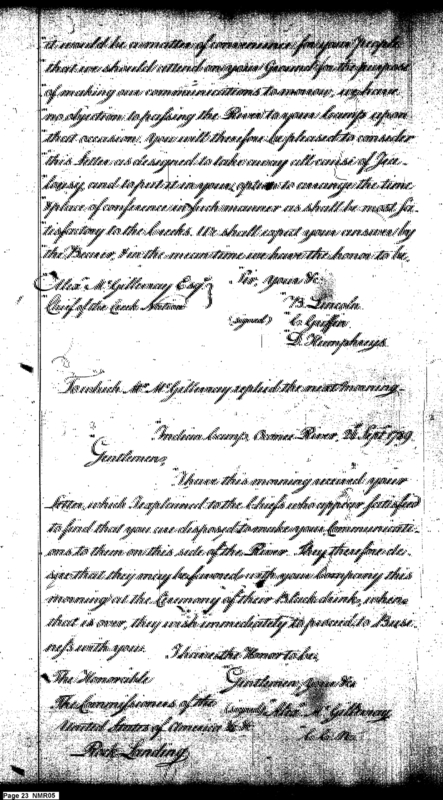 "it would be a matter of convenience for your People
"that we should attend on your Ground for the purpose
"of making our communications tomorrow, we have
"no objection to passing the River to your Camp upon
"that occasion. You will therefore be pleased to consider
"this Letter as designed to take away all cause of Jea-
"lousy, and to put it in your option to arrange the time
"& place of conference in such manner as shall be most sa-
"tisfactory to the Creeks. We shall expect your answer by
"the Bearer, & in the mean time we have the honor to be,
"Alexr McGillivray Esqr } Sir, yours &c
"Chief of the Creek Nation
"B. Lincoln
(signed) "C. Griffin
"D. Humphreys
To which Mr McGillivray replied the next morning.
"Indian Camp, Oconee River, Septr 1789
"Gentlemen,
"I have this morning received your
Letter, which I explained to the Chiefs who appear satisfied
to find that you are disposed to make your Communicati-
ons to them on this side of the River. They therefore de-
sire that they may be favored with your Company this
morning at the Ceremony of their Black drink, when
that is over, they wish immediately to proceed to Busi-
ness with you. I have the Honor to be,
The Honorable Gentlemen, yours &c
The Commissioners of the (signed) "Alexr McGillivray
United States of America &c &c "C. C. N.
Rock Landing
Page 23 NMR05